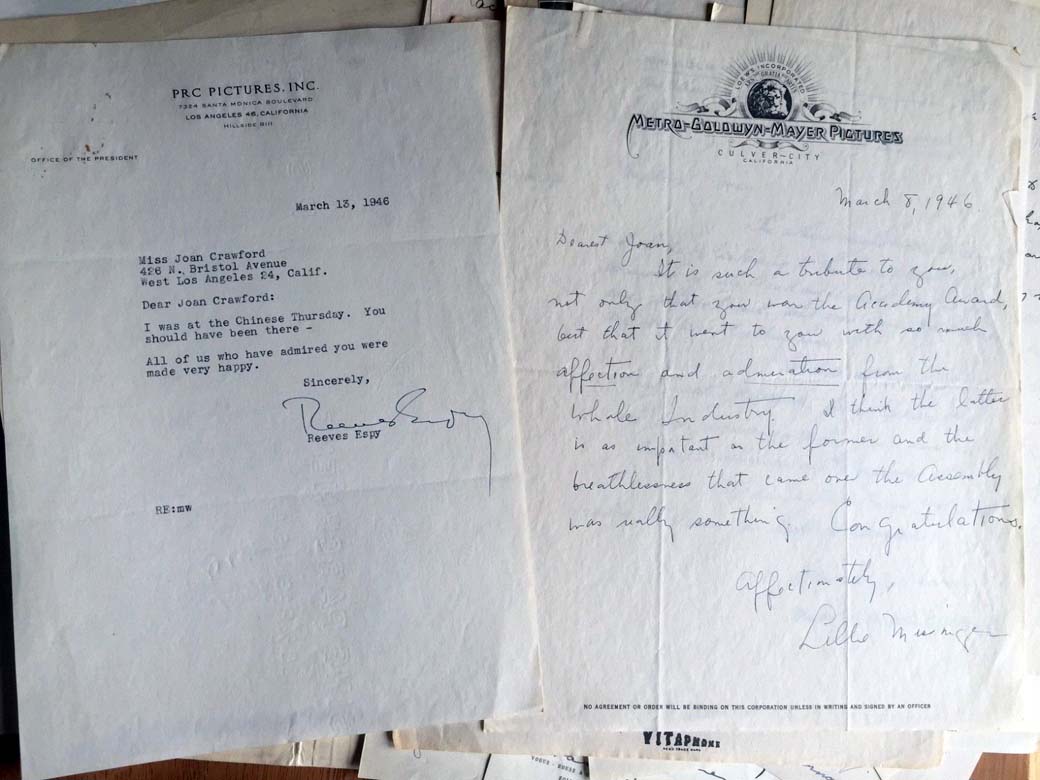 PRC PICTURES, INC.
7324 SANTA MONICA BOULEVARD
LOS ANGELES 46, CALIFORNIA
HILLSIDE 8111
OFFICE OF THE PRESIDENT
March 13, 1946
Miss Joan Crawford
426 N. Bristol Avenue
West Los Angeles 24, Calif.
Dear Joan Crawford:
I was at the Chinese Thursday. You
should have been there -
All of us who have admired you were
made very happy.
Sincerely,
Reeves Espy
Reeves Espy
RE:mw
LOEW'S INCORPORATED
ARS GRATIA ARTIS
METRO-GOLDWYN-MAYER PICTURES
CULVER-CITY
CALIFORNIA
March 8, 1946.
Dearest Joan,
It is such a tribute to you,
not only that you won the Academy Award,
but that it went to you with so much
affection and admiration from the
Whole Industry. I think the latter
is as important as the former and the
breathlessness that came over the Assembly
was really something. Congratulations.
Affectionately,
Lillie Messinger
NO AGREEMENT OR ORDER WILL BE BINDING ON THIS CORPORATION UNLESS IN WRITING AND SIGNED BY AN OFFICER
VITAPHONE